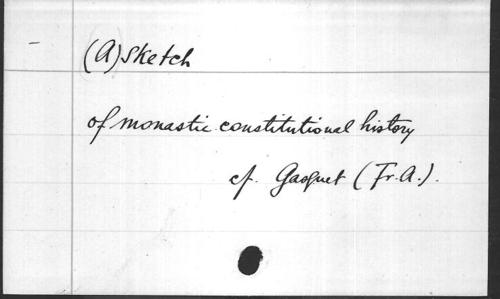 (A) sketch
of monastic constitutional history
cf. Gasquet (Fr. A.).